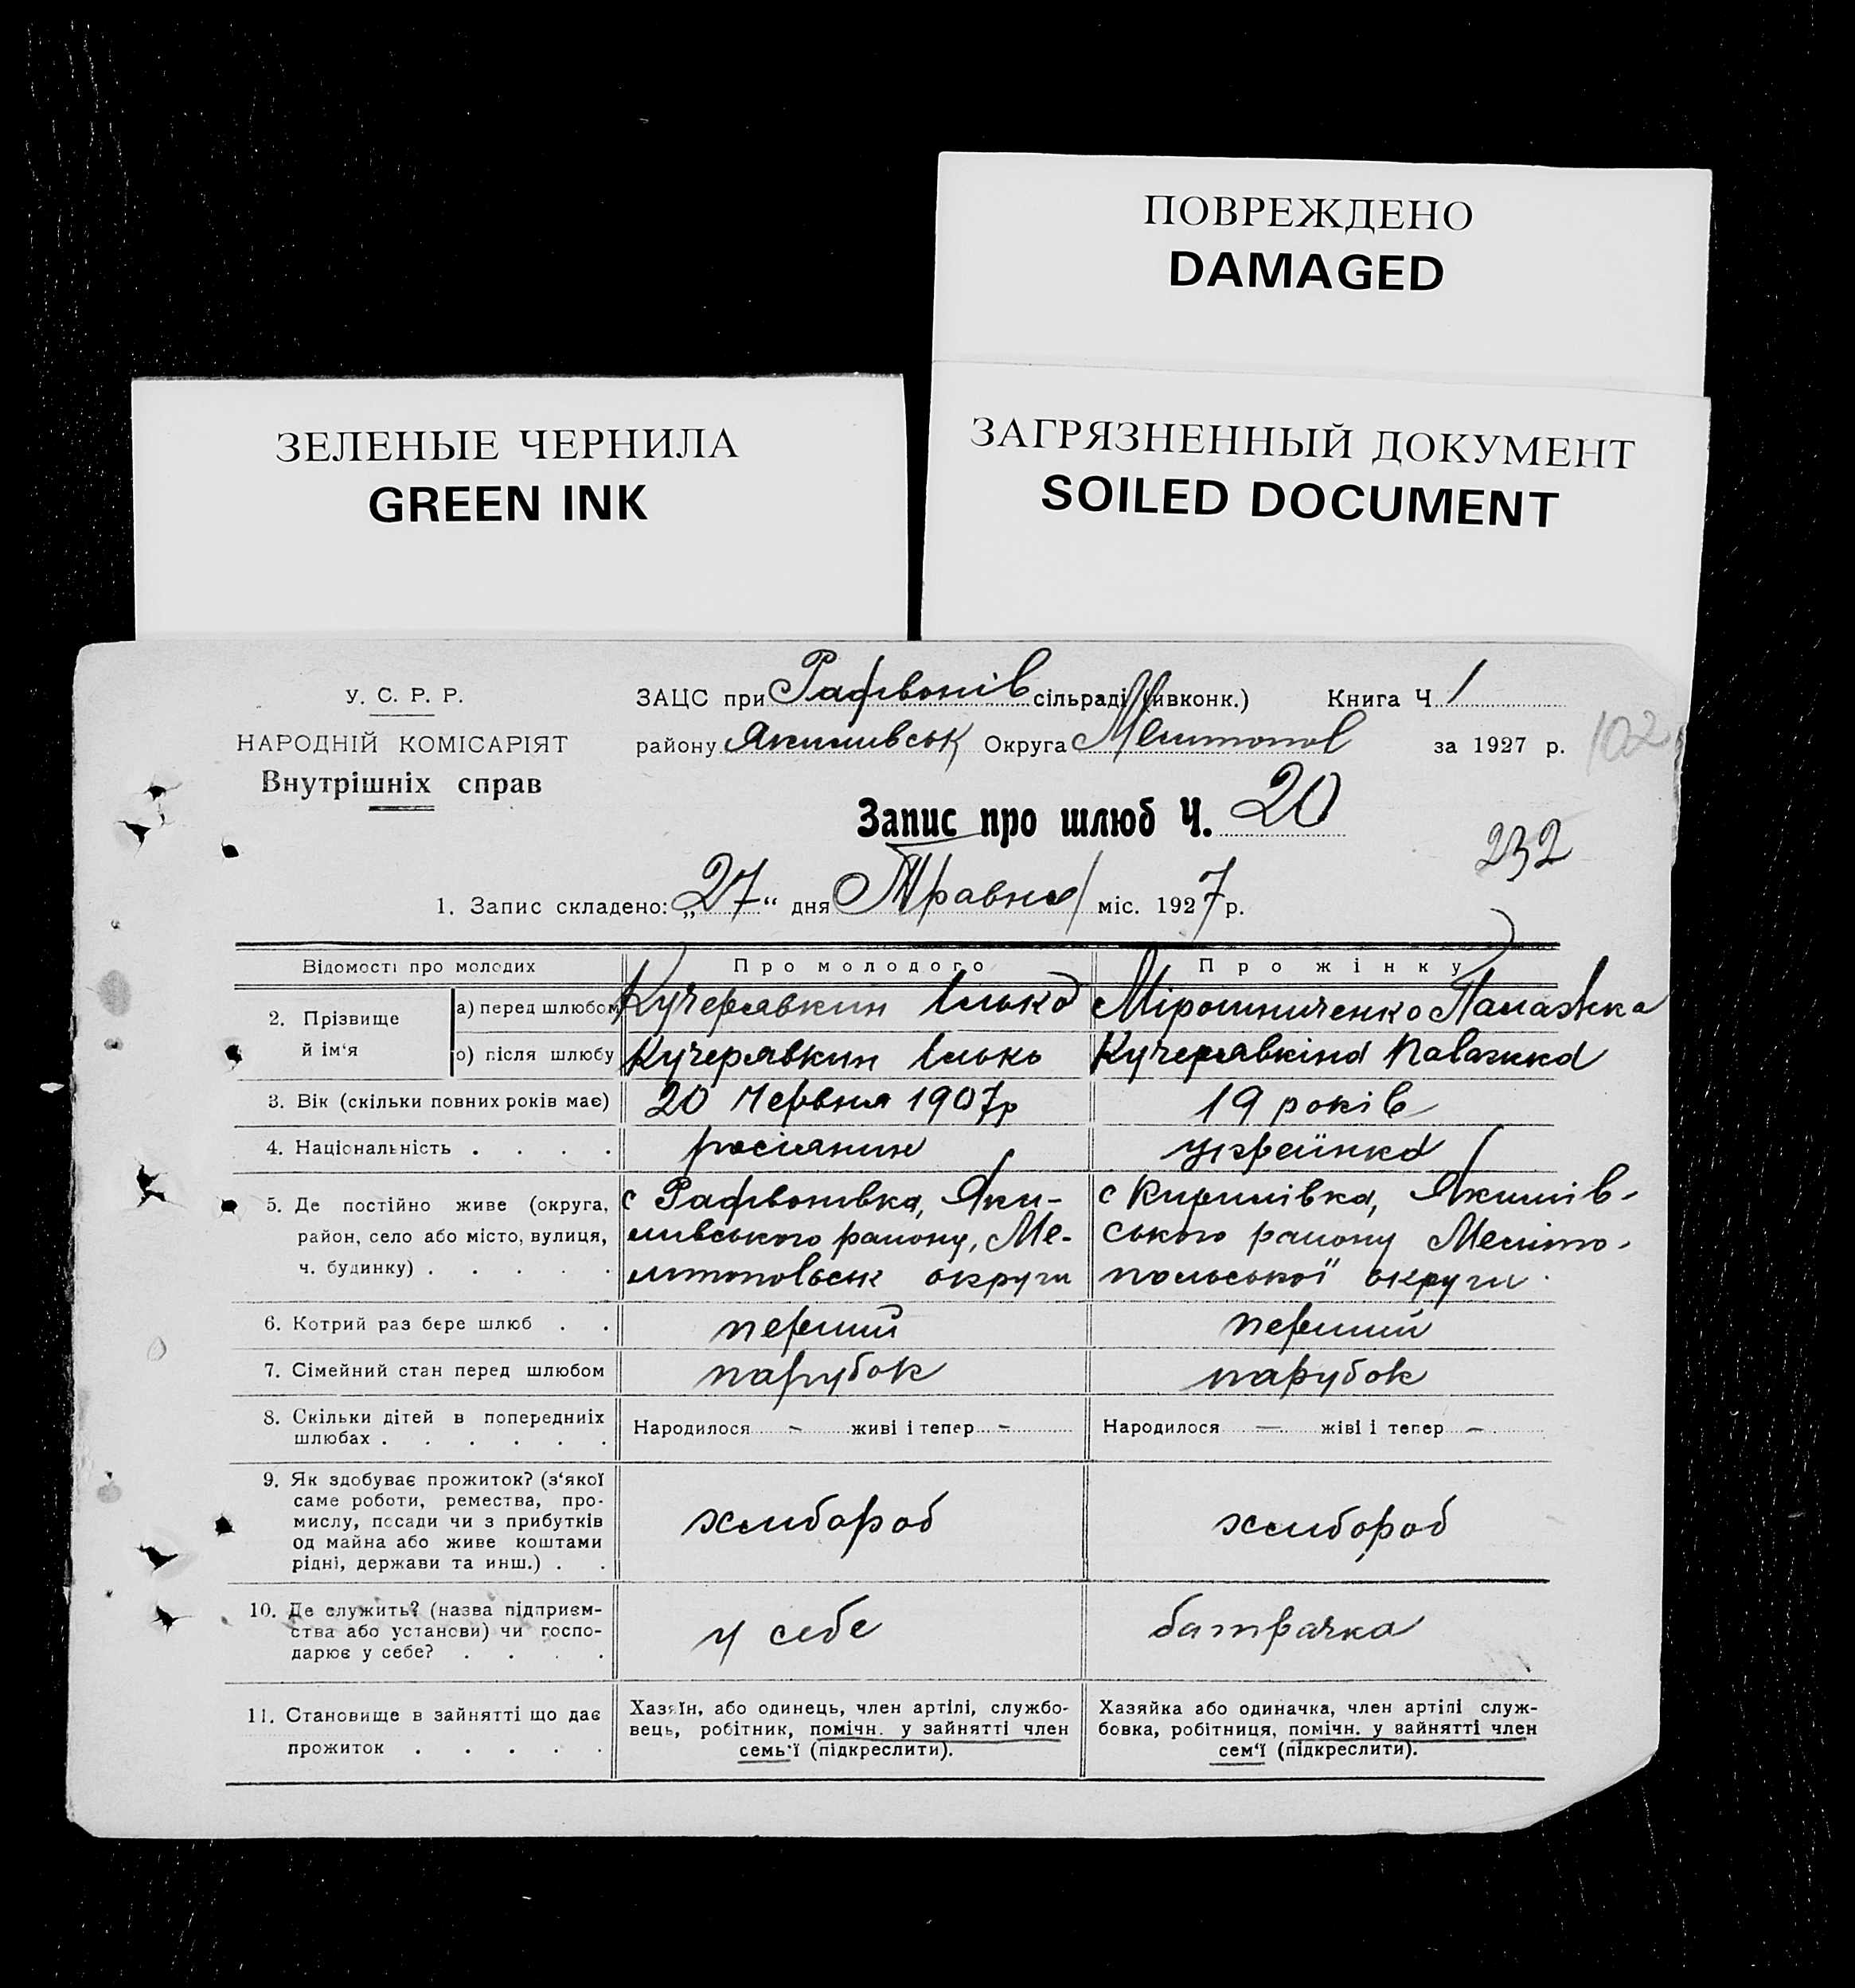 ПОВРЕЖДЕНО
DAMAGED
ЗЕЛЕНЫЕ ЧЕРНИЛА
GREEN INK
ЗАГРЯЗНЕННЫЙ ДОКУМЕНТ
SOILED DOCUMENT
У. С. Р. Р.
НАРОДНІЙ КОМІСАРІЯТ
Внутрішніх справ
ЗАЦС при Рафвонів сільраді (мивконк.) Книга Ч 1
району Якимивськ Округа Мелитопол за 1927 р.
102
Запис про шлюб Ч. 20
232
1. Запис складено: „27“ дня Травня міс. 1927 р.
Відомості про молодих Про молодого Про жінку
2. Прізвище й ім‘я
а) перед шлюбом Кучерявкин Ілько Мірошниченко Палажка
о) після шлюбу Кучерявкин Ілько Кучерявкіна Палажка
3. Вік (скільки повних років має) 20 Червня 1907р 19 років
4. Національність . . . . росіянин украінка
5. Де постійно живе (округа, с Рафвонивка, Яки- с Кирилівка, Якимів-
район, село або місто, вулиця, мивського району, Ме- ського району Мелито-
ч. будинку) . . . . . литопольськ округи польської округи.
6. Котрий раз бере шлюб . . перший перший
7. Сімейний стан перед шлюбом парубок парубок
8. Скільки дітей в попередниіх
шлюбах . . . . . . Народилося – живі і тепер – Народилося — жіві і тепер –
9. Як здобуває прожиток? (з‘якої
саме роботи, ремества, про-
мислу, посади чи з прибутків хлибороб хлибороб
од майна або живе коштами
рідні, держави та инш.) . .
10. Де служить? (назва підприєм-
ства або установи) чи госпо- у себе батрачка
дарює у себе? . . . .
11. Становище в зайнятті що дає
прожиток . . . . .
Хазяїн, або одинець, член артілі, службо-
вець, робітник, помічн. у зайнятті член
семь‘ї (підкреслити).
Хазяйка або одиначка, член артілі служ-
бовка, робітниця, помічн. у зайнятті член
сем‘ї (підкреслити).